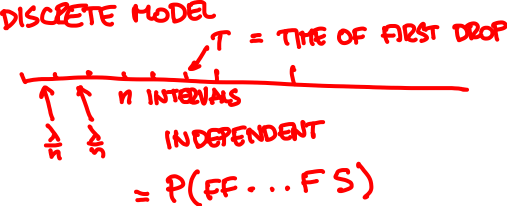 DISCRETE MODEL
T = TIME OF FIRST DROP
n INTERVALS
λ/n λ/n INDEPENDENT
= P(FF...FS)